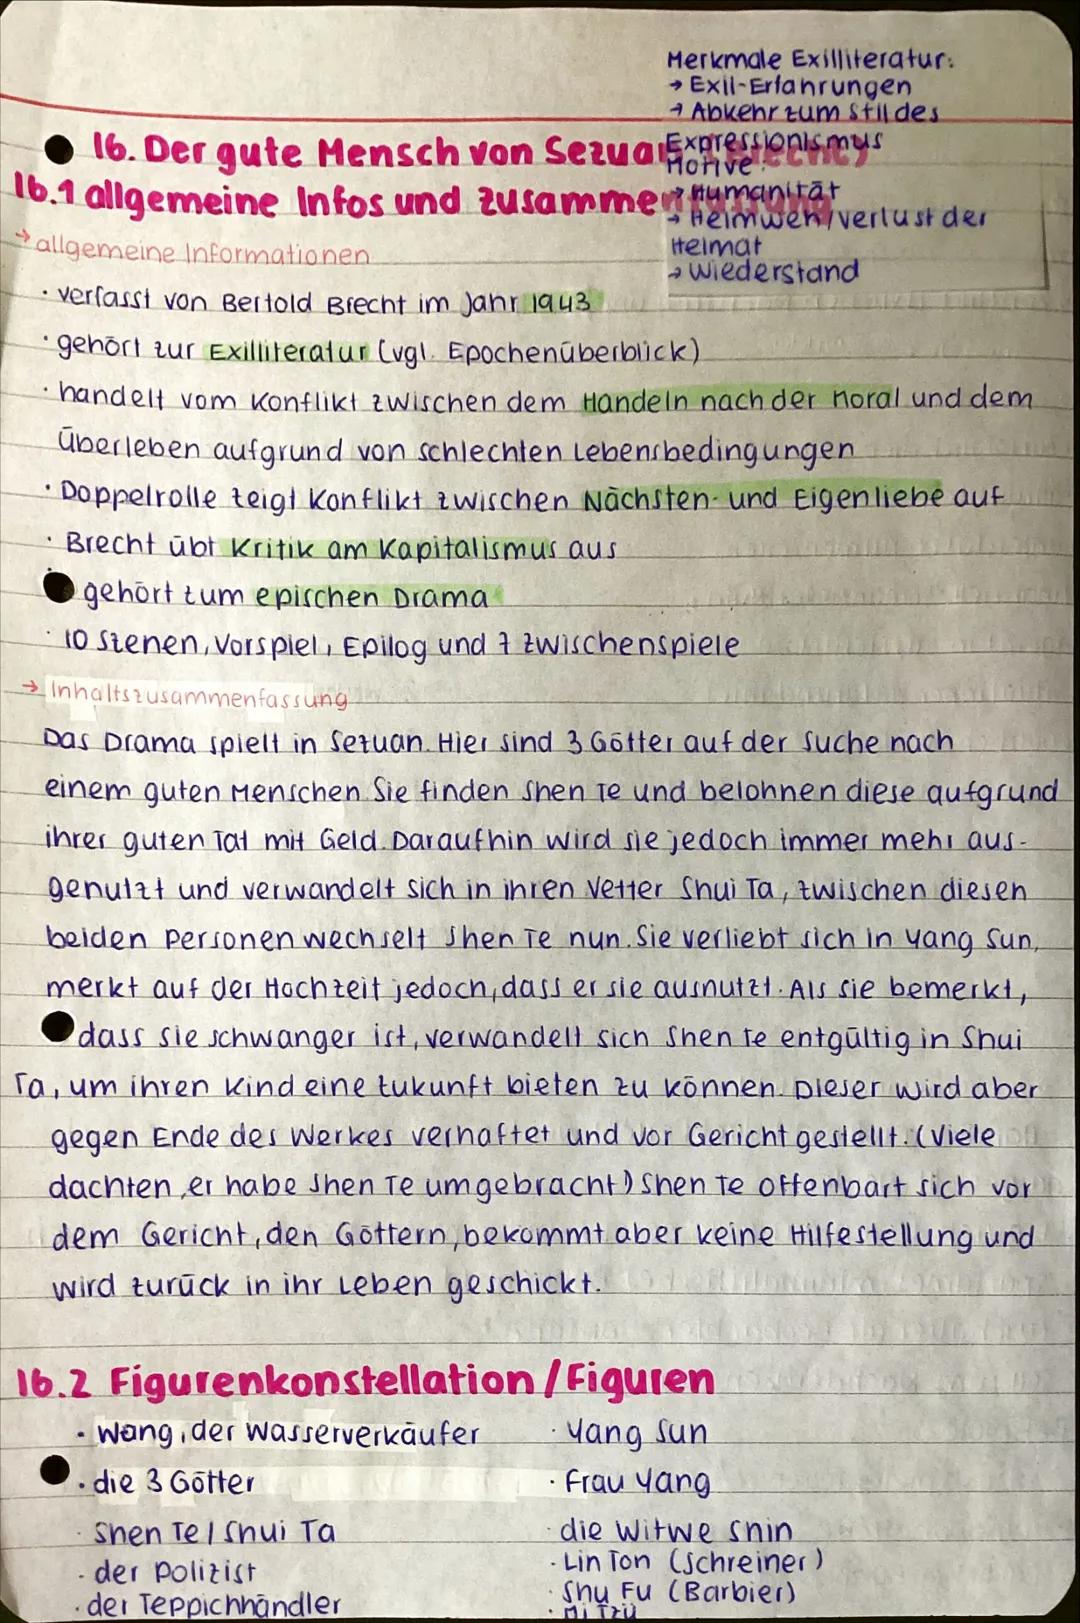 Merkmale Exilliteratur:
→ Exil-Erfahrungen
→ Abkehr zum Stil des
Expressionismus
Motive:
→ Humanität
→ Heimweh/verlust der
Heimat
→ Wiederstand
16. Der gute Mensch von Sezua
16.1 allgemeine Infos und Zusammen
→ allgemeine Informationen
· verfasst von Bertold Brecht im Jahr 1943
· gehört zur Exilliteratur (vgl. Epochenüberblick)
· handelt vom Konflikt zwischen dem Handeln nach der Moral und dem
Überleben aufgrund von schlechten Lebensbedingungen
· Doppelrolle zeigt Konflikt zwischen Nächsten- und Eigenliebe auf
· Brecht übt Kritik am Kapitalismus aus
gehört zum epischen Drama
· 10 Szenen, Vorspiel, Epilog und 7 Zwischenspiele
→ Inhaltszusammenfassung
Das Drama spielt in Sezuan. Hier sind 3 Götter auf der Suche nach
einem guten Menschen. Sie finden Shen Te und belohnen diese aufgrund
ihrer guten Tat mit Geld. Daraufhin wird sie jedoch immer mehr aus-
genutzt und verwandelt sich in ihren Vetter Shui Ta, zwischen diesen
beiden Personen wechselt Shen Te nun. Sie verliebt sich in Yang Sun,
merkt auf der Hochzeit jedoch, dass er sie ausnutzt. Als sie bemerkt,
dass sie schwanger ist, verwandelt sich Shen Te entgültig in Shui
Ta, um ihren Kind eine Zukunft bieten zu können. Dieser wird aber
gegen Ende des Werkes verhaftet und vor Gericht gestellt. (Viele
dachten, er habe Shen Te umgebracht) Shen Te offenbart sich vor
dem Gericht, den Göttern, bekommt aber keine Hilfestellung und
wird zurück in ihr Leben geschickt.
16.2 Figurenkonstellation / Figuren
· Wang, der Wasserverkäufer
· die 3 Götter
· Shen Te / Shui Ta
· der Polizist
· der Teppichhändler
· Yang Sun
· Frau Yang
· die Witwe Shin
· Lin Ton (Schreiner)
· Shu Fu (Barbier)
· Mi Tzü